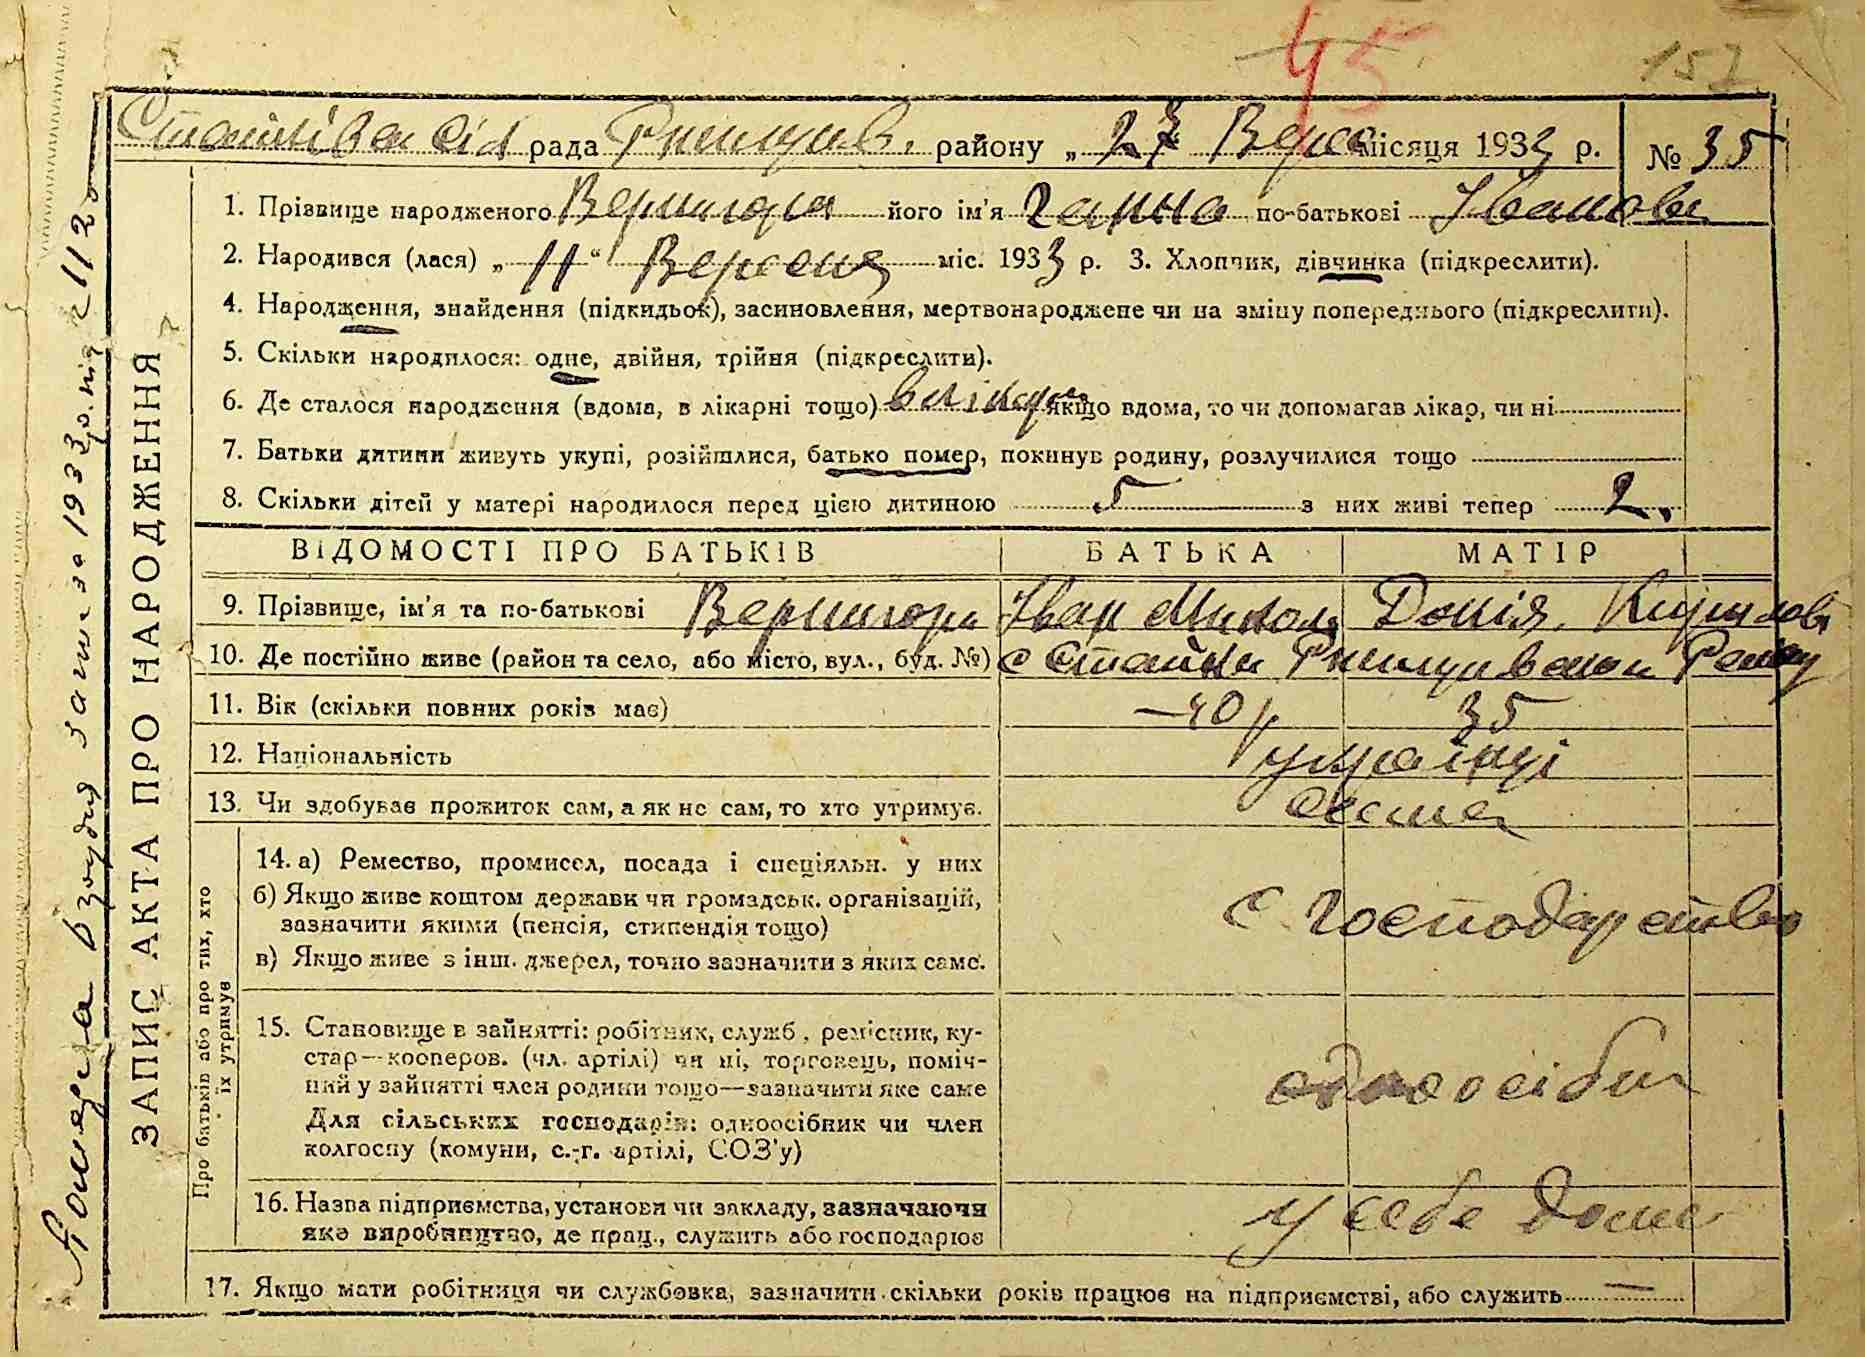 45
157
рада району „27 Верес місяця 1933 р. № 35
ЗАПИС АКТА ПРО НАРОДЖЕННЯ
Померла в грудня запис 1933 р. під № 112
1. Прізвище народженого Вернигора його ім'я Ганна по-батькові Іванови
2. Народився (лася) „11“ Вересня міс. 1933 р. 3. Хлопчик, дівчинка (підкреслити).
4. Народження, знайдення (підкидьок), засиновлення, мертвонароджене чи на зміну попереднього (підкреслити).
5. Скільки народилося: одне, двійня, трійня (підкреслити).
6. Де сталося народження (вдома, в лікарні тощо) якщо вдома, то чи допомагав лікар, чи ні
7. Батьки дитини живуть укупі, розійшлися, батько помер, покинув родину, розлучилися тощо
8. Скільки дітей у матері народилося перед цією дитиною 5 з них живі тепер 2.
ВІДОМОСТІ ПРО БАТЬКІВ БАТЬКА МАТІР
9. Прізвище, ім'я та по-батькові Вернигора Іван Микол Докія Кирилов
10. Де постійно живе (район та село, або місто, вул., буд. №) с Стайки Ржищівськ Району
11. Вік (скільки повних років має) –40р 35
12. Національність українці
13. Чи здобуває прожиток сам, а як не сам, то хто утримує. сама
Про батьків або про тих, хто їх утримує
14. а) Ремество, промисел, посада і спеціяльн. у них
б) Якщо живе коштом держави чи громадськ. організацій,
зазначити якими (пенсія, стипендія тощо)
с господарство
в) Якщо живе з інш. джерел, точно зазначити з яких саме.
15. Становище в зайнятті: робітник, служб., ремісник, ку-
стар—кооперов. (чл. артілі) чи ні, торговець, поміч-
ний у зайнятті член родини тощо—зазначити яке саме
Для сільських господарів: одноосібник чи член
колгоспу (комуни, с.-г. артілі, СОЗ'у)
одноосібн
16. Назва підприємства, установи чи закладу, зазначаючи
яке виробництво, де прац., служить або господарює
у себе дома
17. Якщо мати робітниця чи службовка, зазначити скільки років працює на підприємстві, або служить —